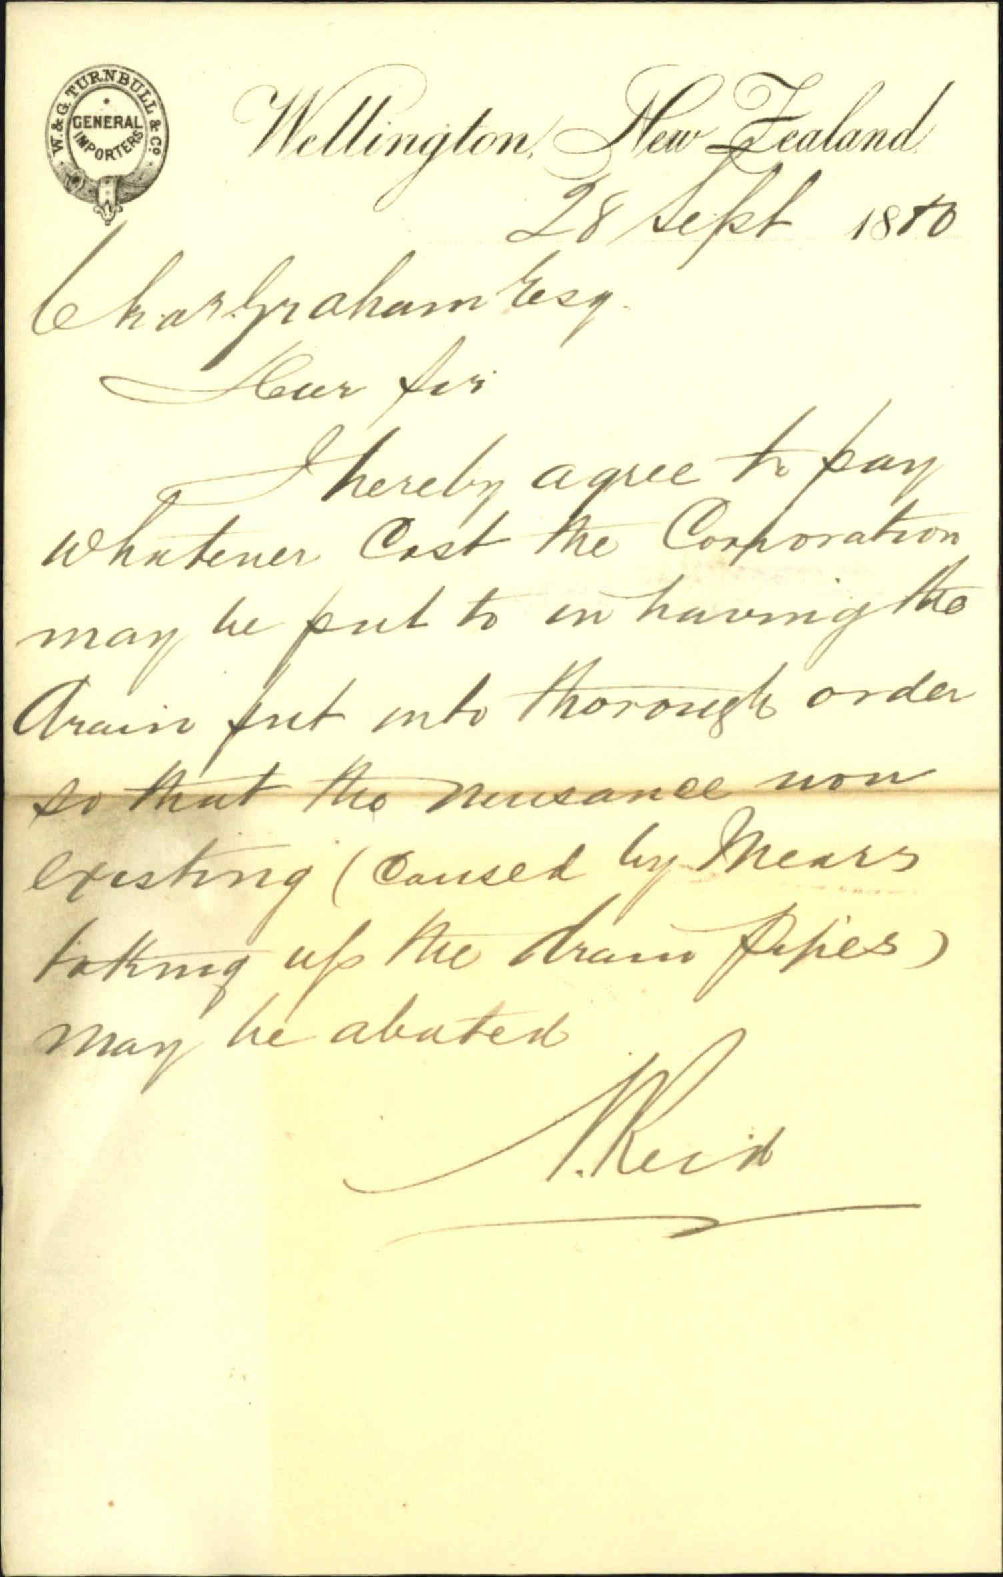 W. & G. TURNBULL & Co
GENERAL
IMPORTERS
Wellington, New Zealand
28 Sept 1880
Chas Graham Esq.
Dear Sir
I hereby agree to pay
whatever Cost the Corporation
may be put to in having the
drain put into thorough order
so that the nuisance now
existing (caused by Mears
taking up the drain pipes)
may be abated
N. Reid